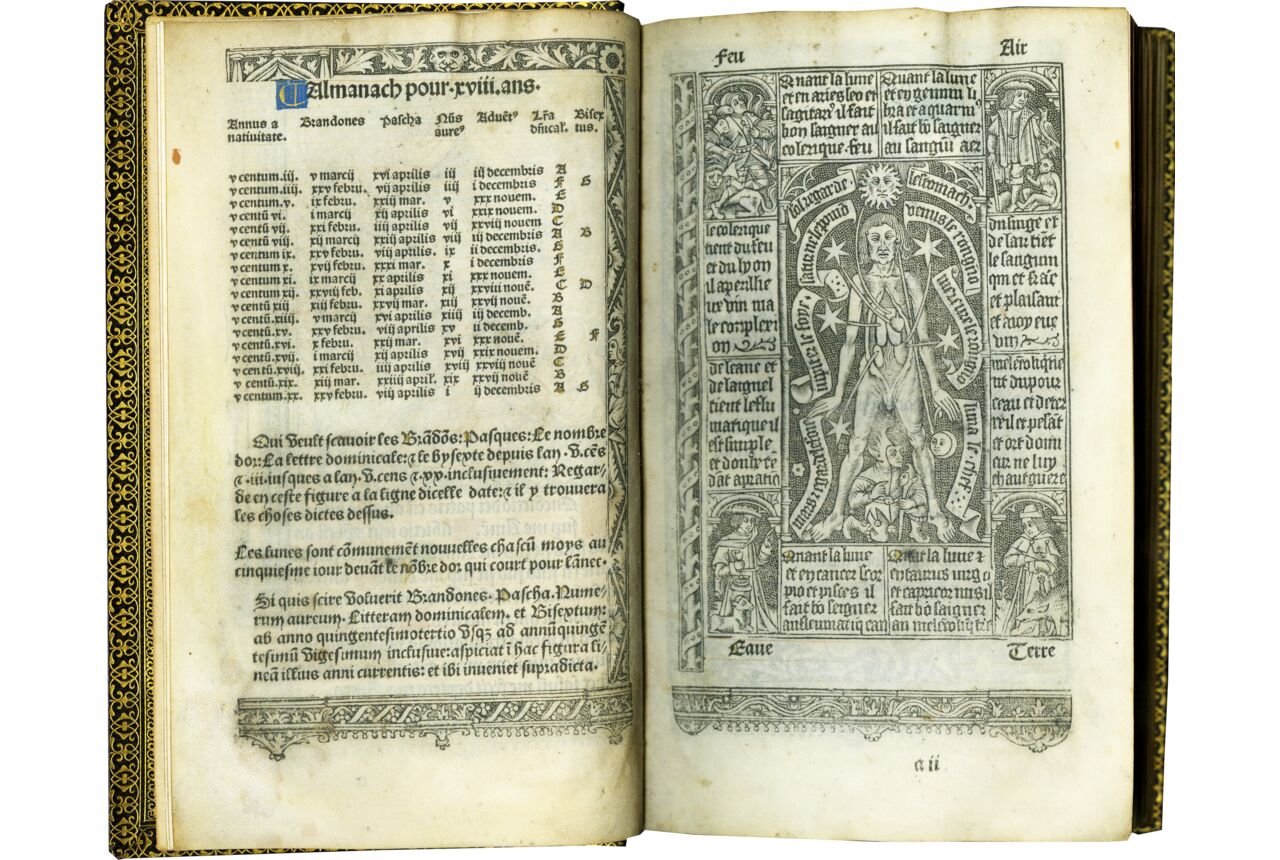 Almanach pour .xviii. ans.
Annus a natiuitate. Brandones Pascha Nũs aure⁹ Aduẽt⁹ Lr̃a dñical'. Bisextus.
v centum.iij. v marcij xvi aprilis iij iij decembris A
v centum.iiij. xxv febru. vij aprilis iiij i decembris F G
v centum.v. ix febru. xxiij mar. v xxx nouem. E
v centũ vi. i marcij xij aprilis vi xxix nouem. D
v centũ vij. xxi febru. iiij aprilis vij xxviij nouem C
v centũ viij. xij marcij xxiij aprilis viij iij decembris A B
v centum ix. xxv febru. viij aprilis ix ij decembris. G
v centum x. xvij febru. xxxi mar. x i decembris F
v centum xi. ix marcij xx aprilis xi xxx nouem. E
v centum xij. xxviij feb. xi aprilis xij xxviij nouẽ. C D
v centũ xiij xiij febru. xxvij mar. xiij xxvij nouẽ. B
v centũ xiiij. v marcij xvi aprilis xiiij iij decemb. A
v centũ.xv. xxv febru. viij aprilis xv ij decemb. G
v centũ.xvi. x febru. xxiij mar. xvi xxx nouẽ. E F
v centũ.xvij. i marcij xij aprilis xvij xxix nouem. D
v centũ.xviij. xxi febru. iiij aprilis xviij xxviij nouẽ C
v centũ.xix. xiij mar. xxiiij april'. xix xxvij nouẽ B
v centum.xx. xxv febru. viij aprilis i ij decembris A G
Qui veult scauoir les Brãdõs: Pasques: Le nombre
dor: La lettre dominicale: ⁊ le bysexte depuis lan .v. cẽs
⁊ .iii. iusques a lan .v. cens ⁊ .xx. inclusiuement: Regar-
de en ceste figure a la ligne dicelle date: ⁊ il y trouuera
les choses dictes dessus.
Les lunes sont cõmunemẽt nouuelles chascũ moys au
cinquiesme iour deuãt le nõbre dor qui court pour lãnee.
Si quis scire voluerit Brandones. Pascha. Nume-
rum aureum. Litteram dominicalem. et Bisextum:
ab anno quingentesimotertio vsqz ad annũ quingẽ
tesimũ vigesimum inclusiue: aspiciat ĩ hac figura li-
neã illius anni currentis: et ibi inueniet supradicta.
Feu
Air
Quant la lune
et en aries leo et
sagitari⁹ il fait
bon saigner au
colerique feu
Quant la lune
et ey gemini li
bra et aquari⁹
il fait bõ saigner
au sanguĩ aer
sol regarde
lestomach
saturne le pmõ
venus le rongnõ
iupiter le foye
mercure le rongnõ
mars garde le fiõe
luna le chef
le colerique
tient du feu
et du lyon
il a perilhe
ux vin ma
le complexi
on
du singe et
de lair tiẽt
le sanguin
et plaisant
vin
de leaue et
de laignel
tient le flu
matique il
est simple
et doulx tẽ
dãt a pratiq
melẽcoliq tie
nt du pour
ceau et de ter
re il est pesãt
et ort dorm
eur ne luy
chault guere
Quant la lune
et en cancer scor
pio et pisces il
fait bõ seigner
au fleumatiq eau
Quãt la lune ⁊
ey taurus virgo
et capricornus il
fait bõ saigner
au melẽcoliq tẽ
Eaue
Terre
a ii